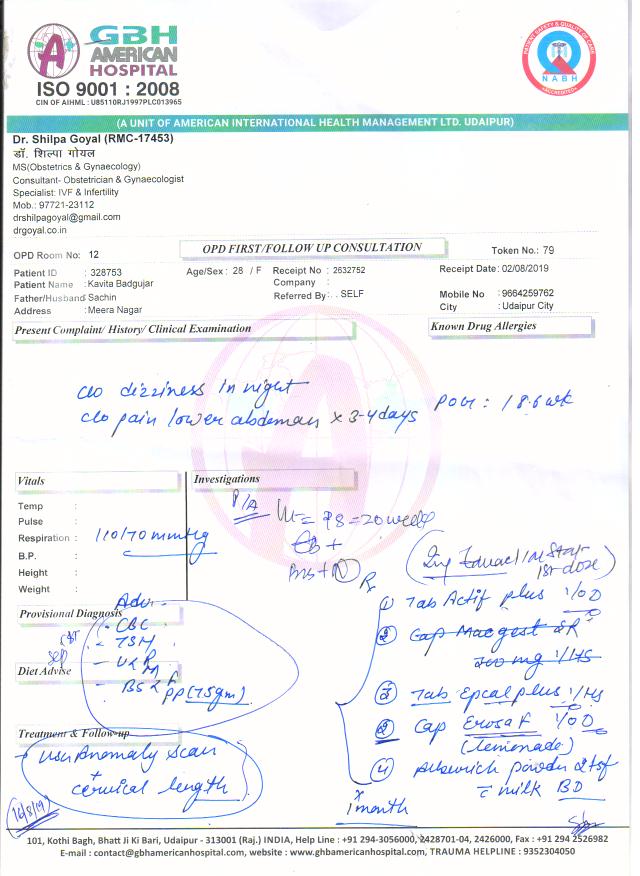 GBH
AMERICAN
HOSPITAL
ISO 9001 : 2008
CIN OF AIHML : U85110RJ1997PLC013965
PATIENT SAFETY & QUALITY OF CARE
NABH
ACCREDITED
(A UNIT OF AMERICAN INTERNATIONAL HEALTH MANAGEMENT LTD. UDAIPUR)
Dr. Shilpa Goyal (RMC-17453)
डॉ. शिल्पा गोयल
MS(Obstetrics & Gynaecology)
Consultant- Obstetrician & Gynaecologist
Specialist: IVF & Infertility
Mob.: 97721-23112
drshilpagoyal@gmail.com
drgoyal.co.in
OPD Room No: 12
OPD FIRST/FOLLOW UP CONSULTATION
Token No.: 79
Patient ID : 328753 Age/Sex : 28 / F Receipt No : 2632752 Receipt Date: 02/08/2019
Patient Name : Kavita Badgujar Company :
Father/Husband Sachin Referred By: . . SELF Mobile No : 9664259762
Address : Meera Nagar City : Udaipur City
Present Complaint/ History/ Clinical Examination
Known Drug Allergies
c/o dizziness in night
c/o pain lower abdomen x 3-4 days
POG : 18.6 wk
Vitals
Investigations
Temp :
Pulse :
Respiration :
110/70 mmHg
B.P. :
Height :
Weight :
P/A
= 20 week
1st dose
Adv.
Provisional Diagnosis
- CBC
- TSH
Diet Advise
PP (75gm)
Treatment & Follow-up
Anomaly scan
+
cervical length
16/8/19
① Tab Actif plus 1/OD
② Cap Macgest SR
1/HS
Tab Epcal plus 1/HS
② Cap 1/OD
(Lemonade)
④ powder 2tsf
c milk BD
x 1 month
101, Kothi Bagh, Bhatt Ji Ki Bari, Udaipur - 313001 (Raj.) INDIA, Help Line : +91 294-3056000, 2428701-04, 2426000, Fax : +91 294 2526982
E-mail : contact@gbhamericanhospital.com, website : www.ghbamericanhospital.com, TRAUMA HELPLINE : 9352304050